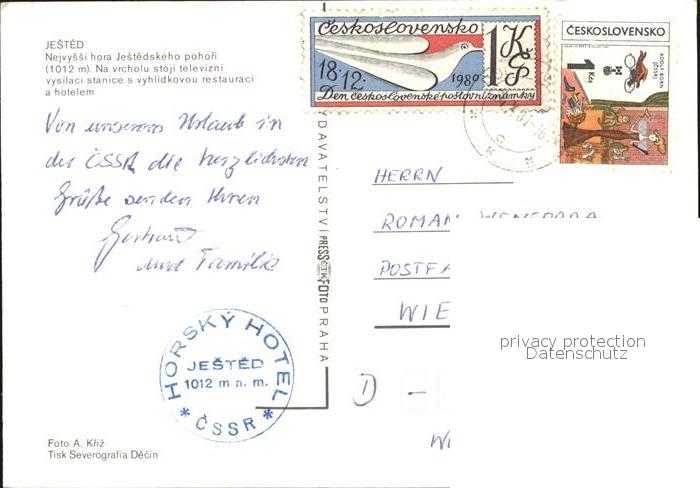 JEŠTĚD
Nejvyšší hora Ještědského pohoří
(1012 m). Na vrcholu stojí televizní
vysílací stanice s vyhlídkovou restaurací
a hotelem
Von unserem Urlaub in
der ČSSR die herzlichsten
Grüße senden Ihnen
und Familie
HORSKÝ HOTEL
JEŠTĚD
1012 m n. m.
* ČSSR *
Foto A. Kříž
Tisk Severografia Děčín
VYDAVATELSTVÍ PRESSFOTO PRAHA
Československo
1 Kčs
18·12· 1989
Den československé poštovní známky
ČESKOSLOVENSKO
1 Kčs
ADOLF BORN
HERRN
ROMAN
POSTFA
WIE
D -
privacy protection
Datenschutz